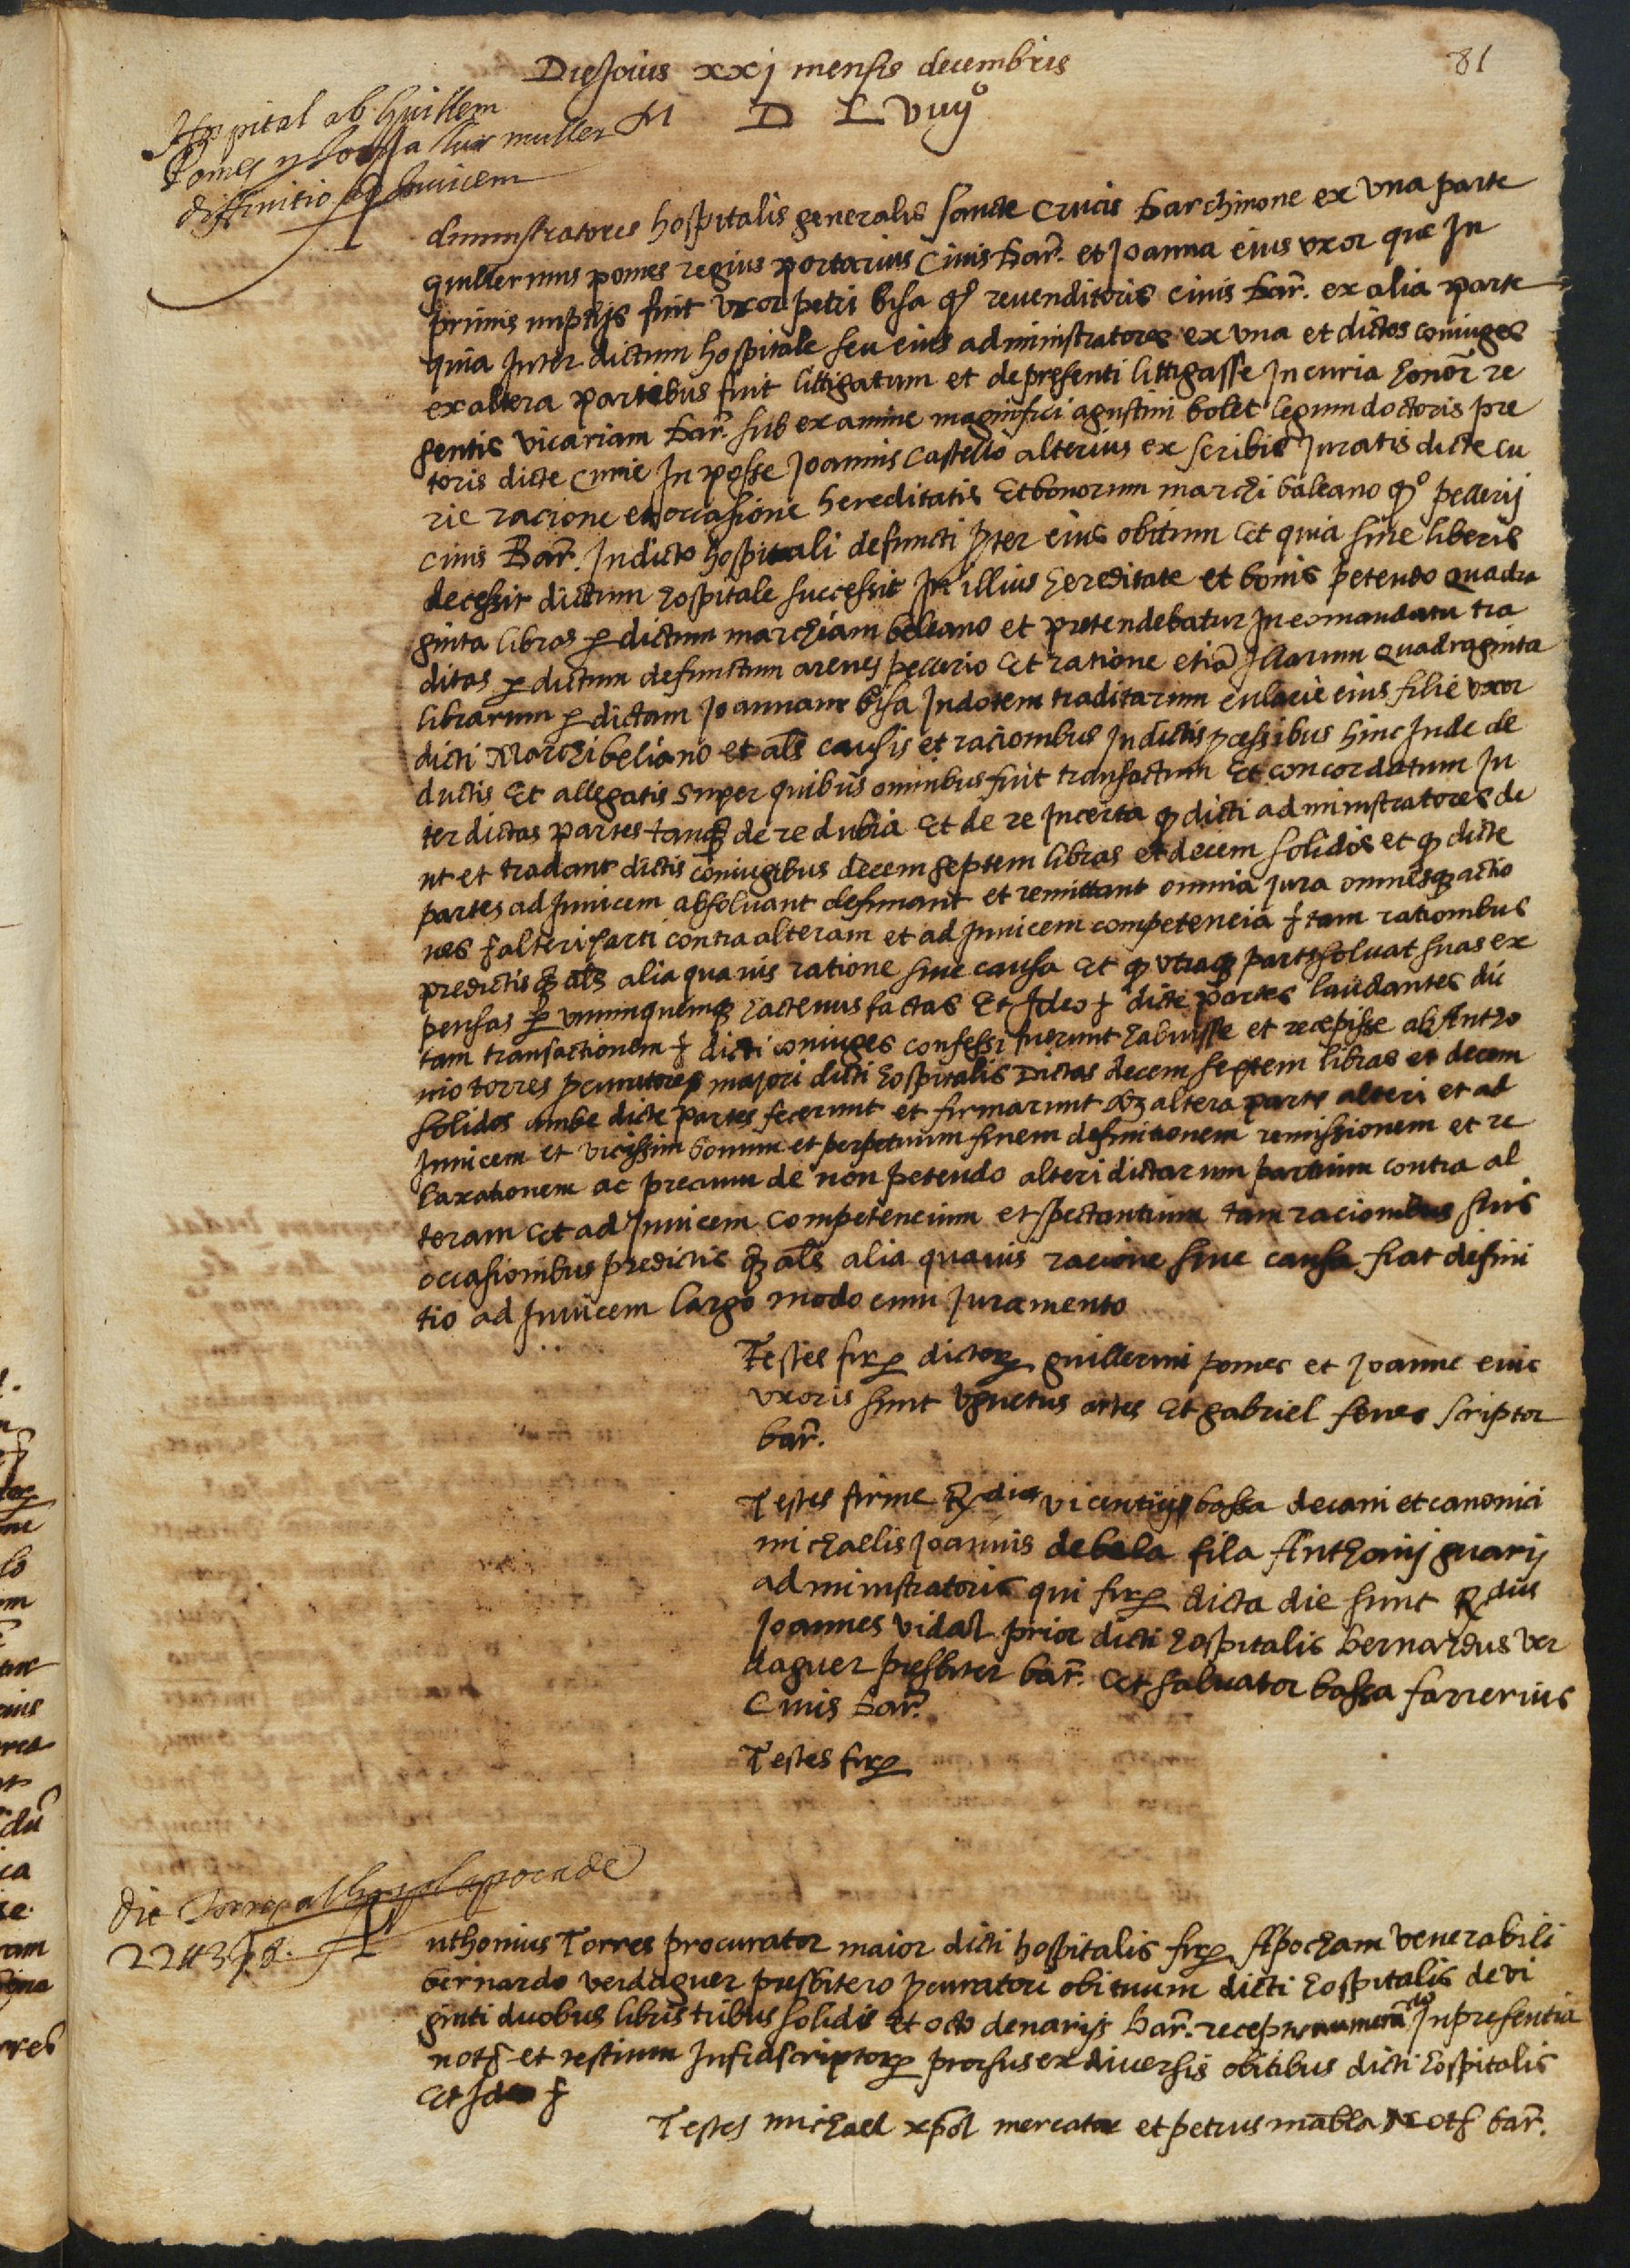 Die Jouis xxj mensis decembris
81
M D L viiijº
Hospital ab Guillem
Pomes y Joana sua muller
diffinitio ad Inuicem
dministratores hospitalis generalis sancte Crucis barchinone ex vna parte
guillermus pomes regius portarius Ciuis bar. et Joanna eius vxor que In
primis nuptijs fuit vxor petri bisa qº reuenditoris ciuis bar. ex alia parte
quia Inter dictum hospitale seu eius administratores ex vna et dictos coniuges
ex altera partibus fuit littigatum et de presenti littigasse In curia honor re
gentis vicariam bar. sub examine magnifici agustini bolet legum doctoris pre
toris dicte Curie In posse Joannis Castello alterius ex scribis Juratis dicte cu
rie racione et occasione hereditatis Et bonorum marchi baleano qº pellerij
Ciuis Bar. In dicto hospitali defuncti pter eius obitum Et quia sine liberis
decessit dictum hospitale successit In illius hereditate et bonis petendo quadra
ginta libras p dictum marchiam beleano et pretendebatur In comandatu tra
ditas p dictum defunctum arenes pellerio Et ratione etia Illarum quadraginta
librarum p dictam Joannam bisa In dotem traditarum eulacie eius filie vxor
dicti Marchi beliano et als causis et racionibus In dictis pcessibus hinc Inde de
ductis Et allegatis super quibus omnibus fuit transactum Et concordatum In
ter dictas partes tanq de re dubia Et de re Incerta q dicti administratores de
nt et tradant dictis coniugibus decem septem libras et decem solidos et q dicte
partes ad Inuicem absoluant definiant et remittant omnia Jura omnesq actio
nes f alteri parti contra alteram et ad Inuicem competencia f tam rationibus
predictis q als alia quauis ratione siue causa Et q vtraq parts soluat suas ex
pensas p vnumquemq hactenus factas Et Ideo f dicte partes laudantes dic
tam transactionem f dicti coniuges confessi fuerunt habuisse et recepisse ab Antho
nio torres pcuratore majori dicti hospitalis Dictas decem septem libras et decem
solidos ambe dicte partes fecerunt et firmarunt altera parts alteri et ad
Inuicem et vicissim bonum et perpetuum finem definitionem remissionem et re
laxationem ac precium de non petendo alteri dictarum partium contra al
teram Et ad Inuicem competencium et spectantium tam racionibus siuis
occasionibus predictis q als alia quauis racione siue causa fiat defini
tio ad Inuicem largo modo cum Juramento
Testes firp dictorp guillermi pomes et Joanne eius
vxoris sunt vguetus artes Et gabriel feues scriptor
bar.
Testes firme Rdi vicentij bossa decani et canonici
michaelis Joannis de bela fila Anthonij guarij
administratoris qui firp dicta die sunt Rdus
Joannes vidal prior dicti hospitalis bernardus ver
daguer presbiter bar. Et saluator bossa farrerius
Ciuis bar.
Testes firp
die
22 ℔ 3 ẜ 8.
nthonius Torres procurator maior dicti hospitalis firp Apocham venerabili
bernardo verdaguer presbitero pcuratori obituum dicti hospitalis de vi
ginti duobus libris tribus solidis Et octo denarijs bar. receptis numerado In presentia
notf et testium Infrascriptorp prorsus ex diuersis obitibus dicti hospitalis
Et Ideo f
Testes michael xpol mercator et petrus mabla Notf bar.